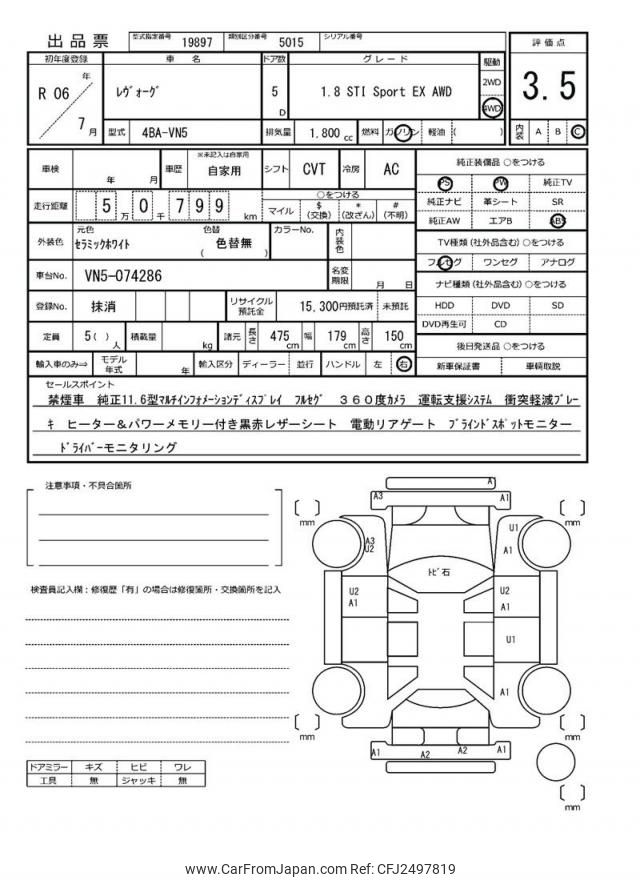 出品票 型式指定番号 19897 類別区分番号 5015 シリアル番号
初年度登録 車名 ドア数 グレード 駆動 評価点
R 06 年 7 月 ﾚｳﾞｫｰｸﾞ 5 D 1.8 STI Sport EX AWD 2WD 4WD 3.5
型式 4BA-VN5 排気量 1,800 cc 燃料 ガソリン 軽油 ( ) 内装 A B C
車検 年 月 車歴 ※未記入は自家用 自家用 シフト CVT 冷房 AC
走行距離 5 万 0 千 7 9 9 km ○をつける
マイル $ (交換) * (改ざん) # (不明)
外装色 元色 ｾﾗﾐｯｸﾎﾜｲﾄ 色替 ( 色替無 ) カラーNo. 内装色
車台No. VN5-074286 名変期限 月 日
登録No. 抹消 リサイクル預託金 15,300円預託済 未預託
定員 5( ) 人 積載量 kg 諸元 長さ 475 cm 幅 179 cm 高さ 150 cm
輸入車のみ⇒ モデル年式 年 輸入区分 ディーラー 並行 ハンドル 左 右
純正装備品 ○をつける
PS PW 純正TV
純正ナビ 革シート SR
純正AW エアB ABS
TV種類 (社外品含む) ○をつける
フルセグ ワンセグ アナログ
ナビ種類 (社外品含む) ○をつける
HDD DVD SD
DVD再生可 CD
後日発送品 ○をつける
新車保証書 車輌取説
セールスポイント
禁煙車 純正11.6型ﾏﾙﾁｲﾝﾌｫﾒｰｼｮﾝﾃﾞｨｽﾌﾟﾚｲ ﾌﾙｾｸﾞ 360度ｶﾒﾗ 運転支援ｼｽﾃﾑ 衝突軽減ﾌﾞﾚｰ
ｷ ヒーター＆パワーメモリー付き黒赤レザーシート 電動リアゲート ﾌﾞﾗｲﾝﾄﾞｽﾎﾟｯﾄモニター
ﾄﾞﾗｲﾊﾞｰモニタリング
注意事項・不具合箇所
検査員記入欄：修復歴「有」の場合は修復箇所・交換箇所を記入
ドアミラー キズ ヒビ ワレ
工具 無 ジャッキ 無
A
A3 A1
mm mm
A3 U2 U1 A1
ﾄﾋﾞ石
U2 A1 U2 A1
U1
A1
mm mm
A1 A2 A2 A1
mm
www.CarFromJapan.com Ref: CFJ2497819